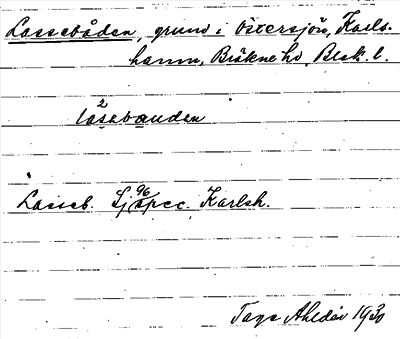 Lassebåden, grund i Östersjön, Karls-
hamn, Bräkne hd, Blek. l.
2
låsebauden
96
Lasseb. Sj spec. Karlsh.
Tage Ahldén 1930